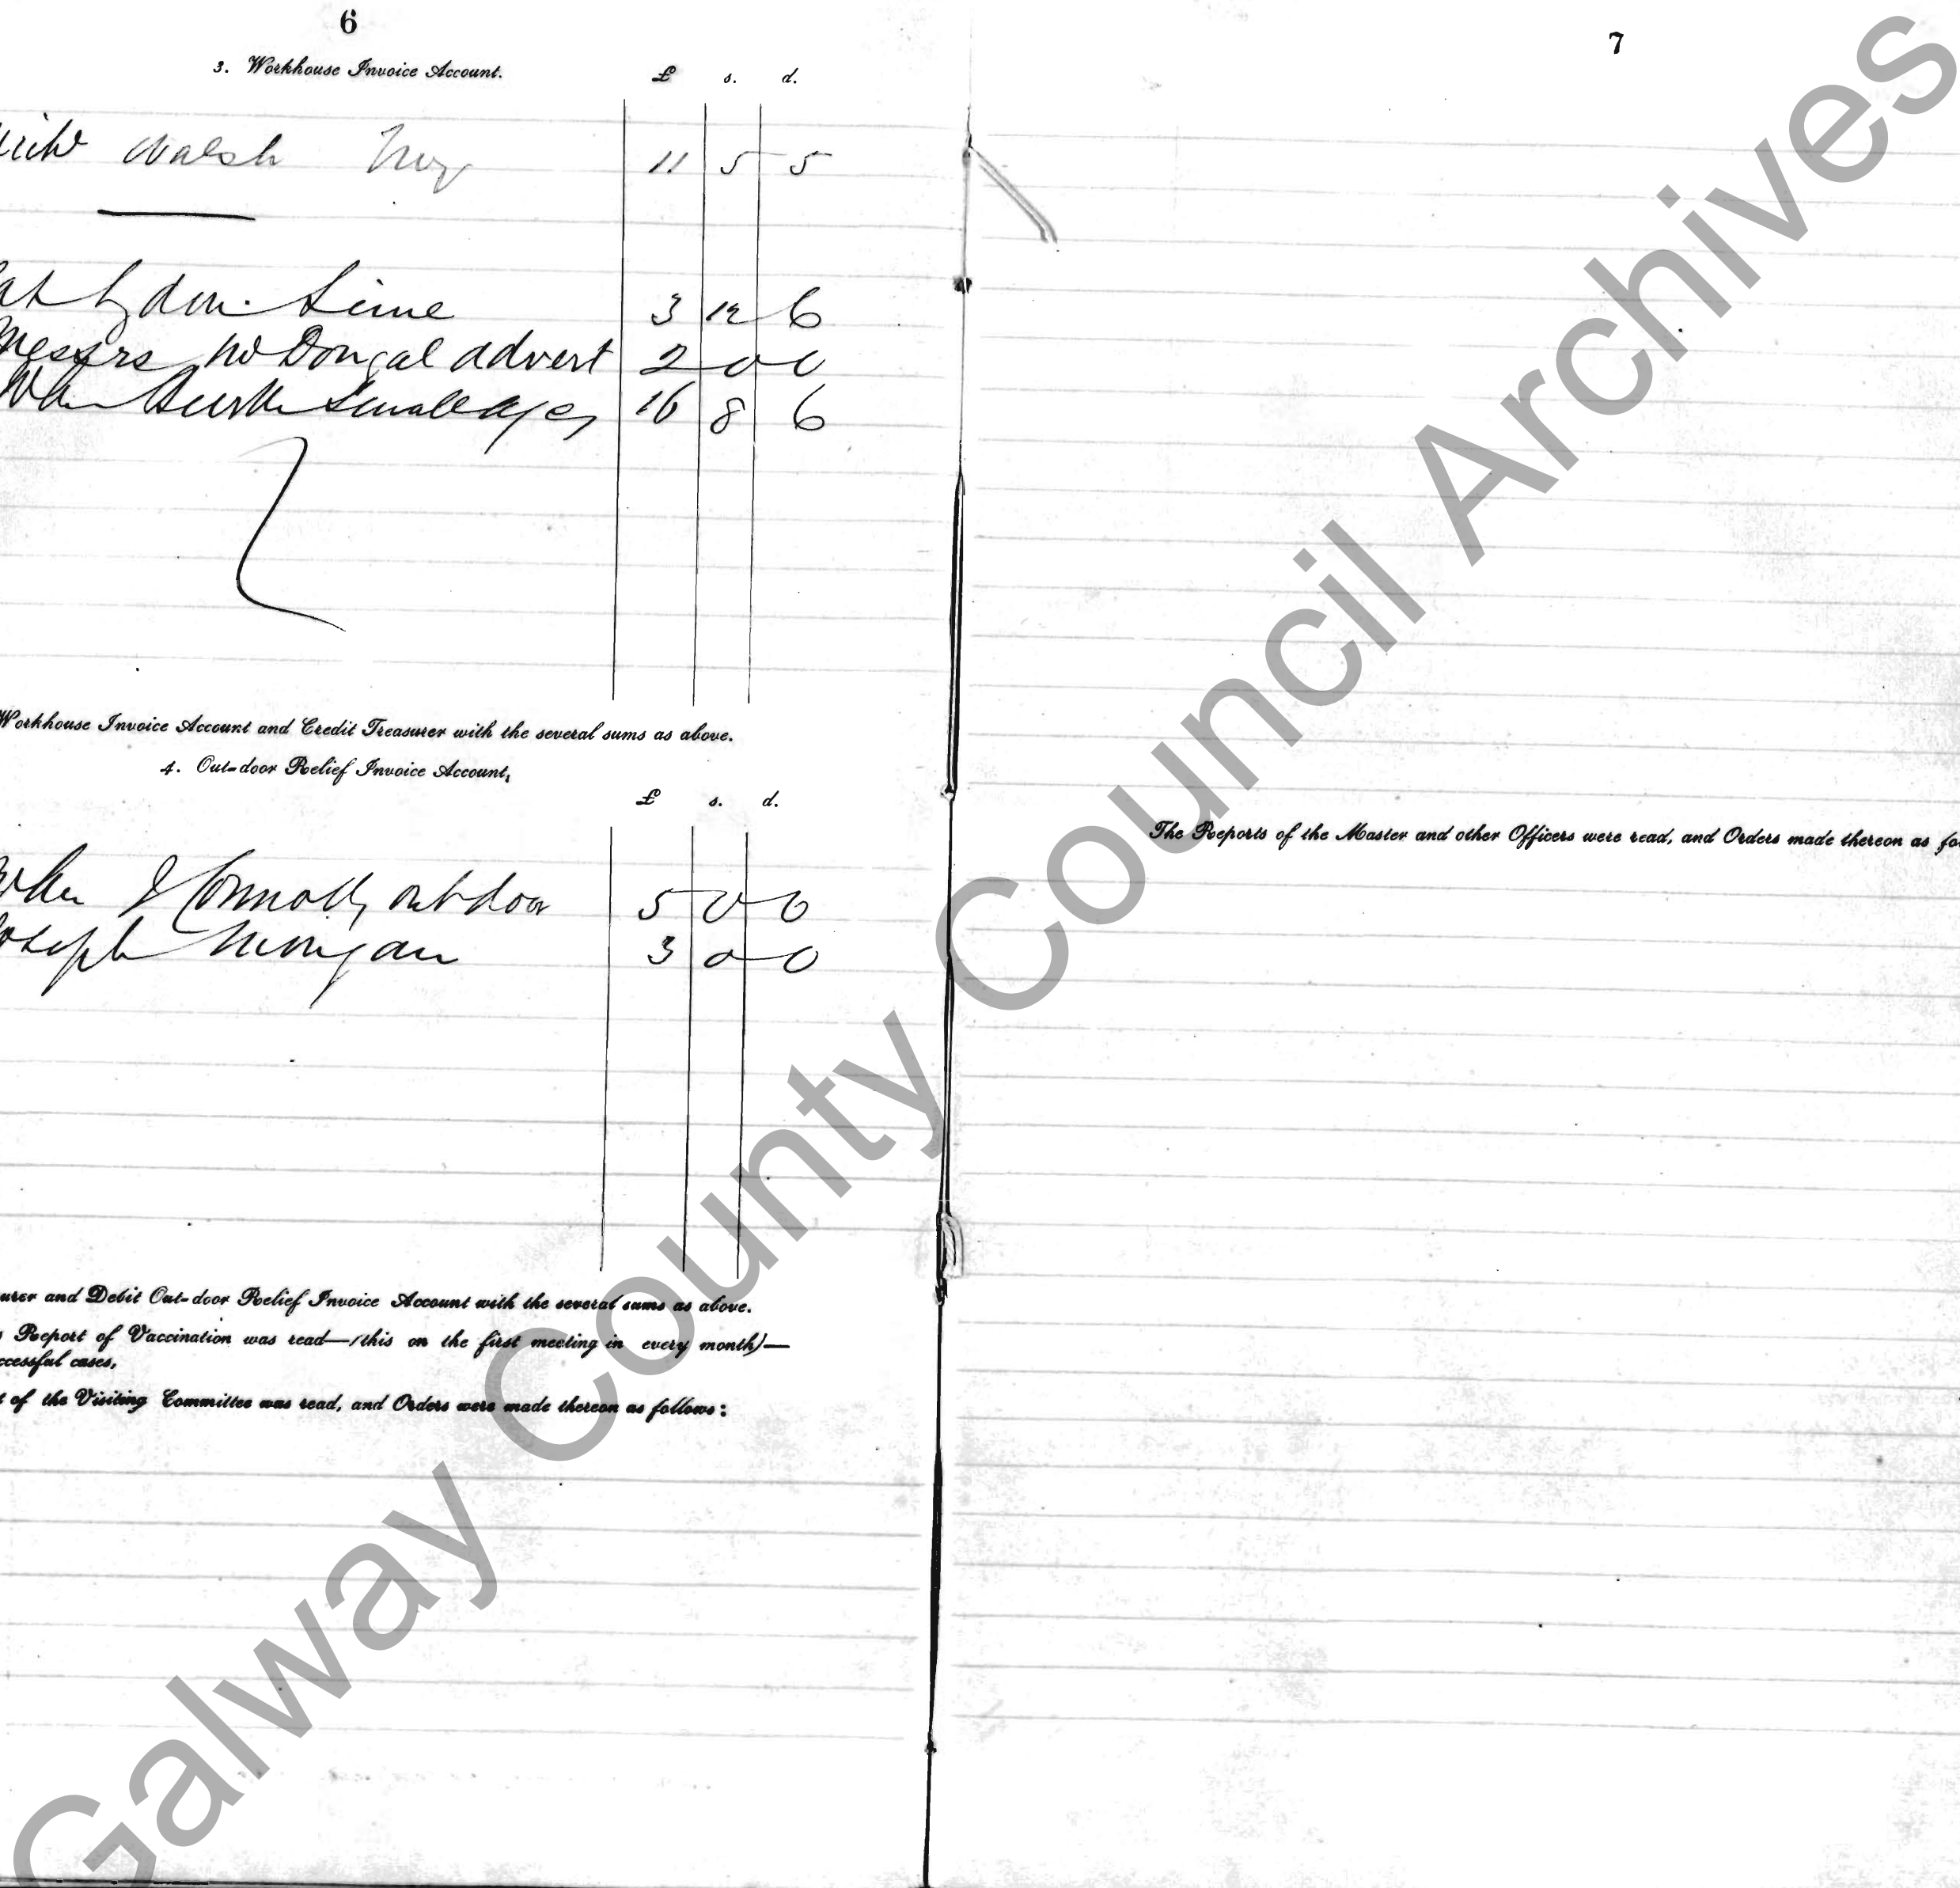 6
3. Workhouse Invoice Account.
£ s. d.
Walsh 11 5 5
Lydon Lime 3 12 6
Messrs McDougal advert 2 0 0
16 8 6
Workhouse Invoice Account and Credit Treasurer with the several sums as above.
4. Out-door Relief Invoice Account,
£ s. d.
J Connolly outdoor 5 0 0
Joseph Mongan 3 0 0
and Debit Out-door Relief Invoice Account with the several sums as above.
Report of Vaccination was read—(this on the first meeting in every month)—
cases,
of the Visiting Committee was read, and Orders were made thereon as follows:
7
The Reports of the Master and other Officers were read, and Orders made thereon as fo
Galway County Council Archives